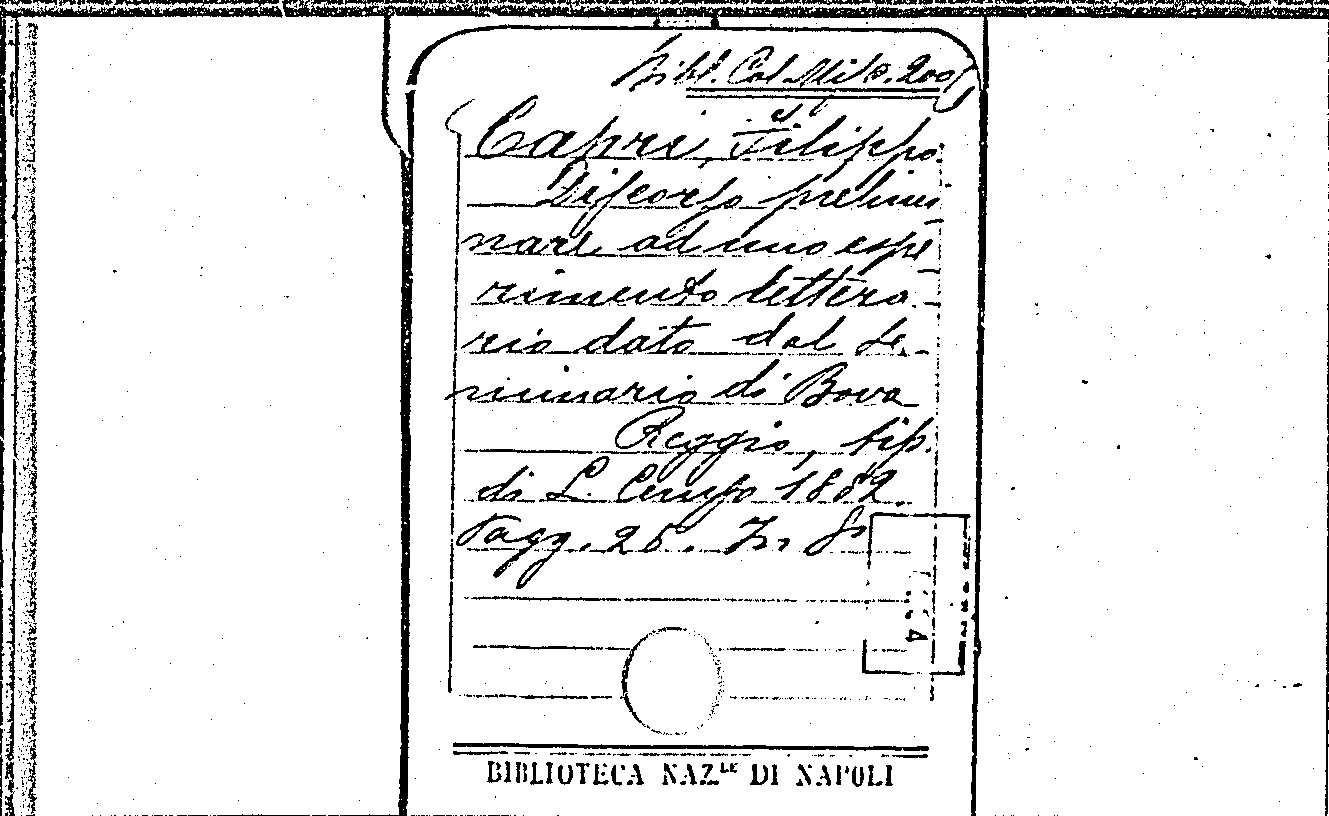 Bibl. Cal. Misc. 200
Capri, Filippo
Discorso prelimi
nare ad uno espe
rimento lettera-
rio dato dal Se-
minario di Bova
Reggio, tip.
di L. Ceruso 1882.
Pagg. 26. In 8º
4
BIBLIOTECA NAZ.LE DI NAPOLI